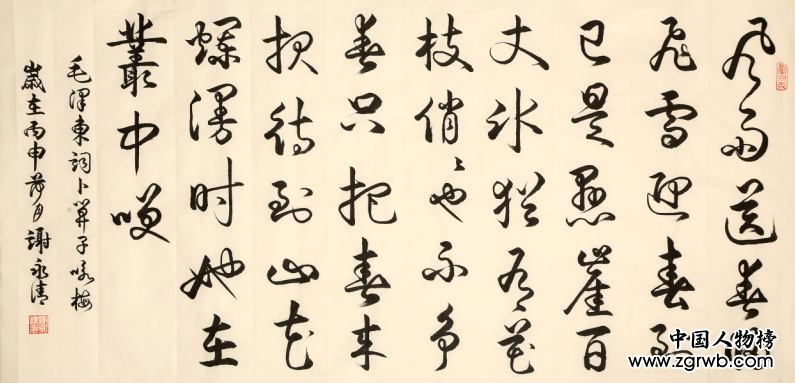 风雨送春归
飞雪迎春到
已是悬崖百
丈冰犹有花
枝俏〻也不争
春只把春来
报待到山花
爛漫时她在
叢中咲
毛澤東詞卜算子咏梅
歲在丙申月謝永清
中国人物榜
www.zgrwb.com